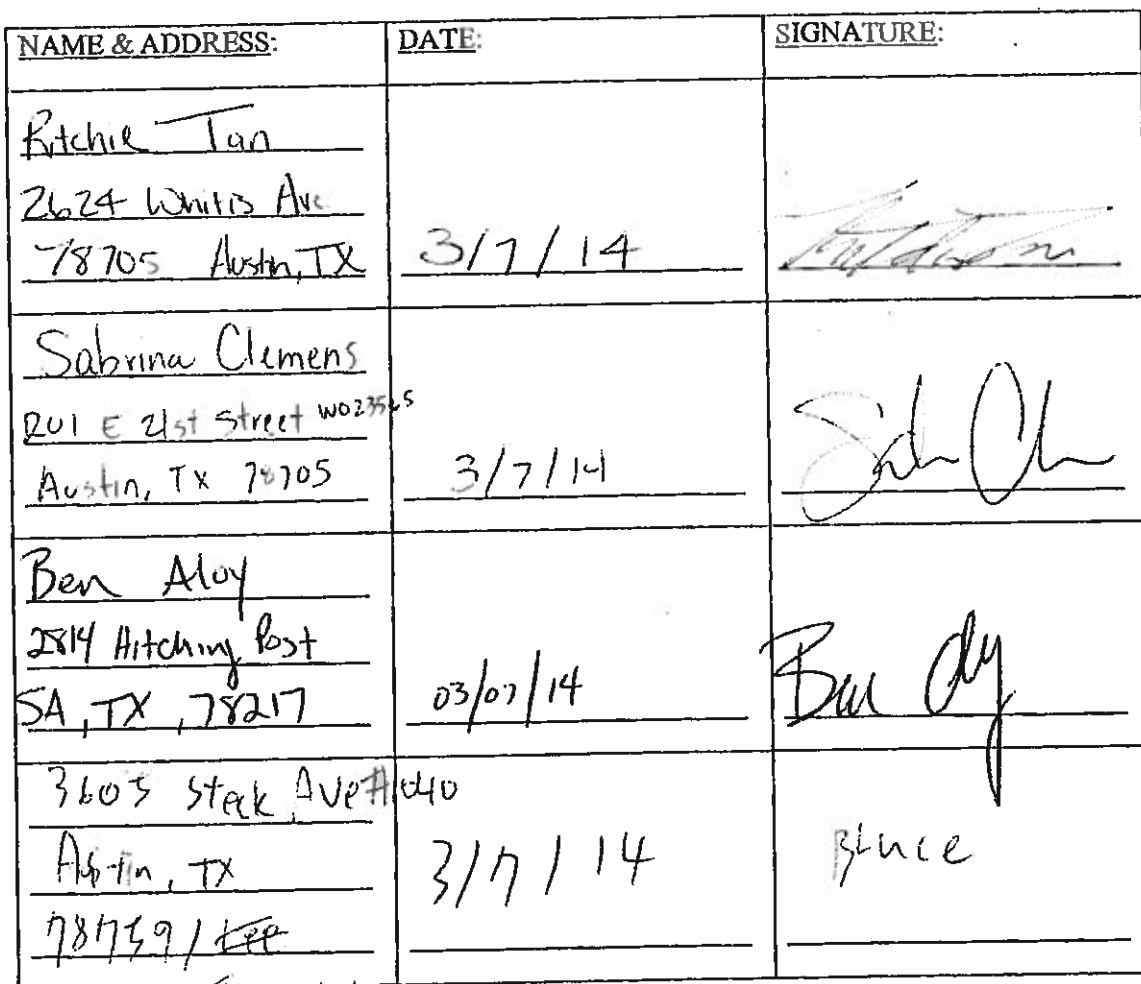 NAME & ADDRESS: DATE: SIGNATURE:
Ritchie Tan
2624 Whitis Ave
78705 Austin, TX 3/7/14
Sabrina Clemens
201 E 21st Street
Austin, TX 78705 3/7/14
Ben Aloy
2814 Hitching Post
SA, TX, 78217 03/07/14
3605 Steck Ave #1040
Austin, TX 3/7/14 Bruce
78759 / Lee